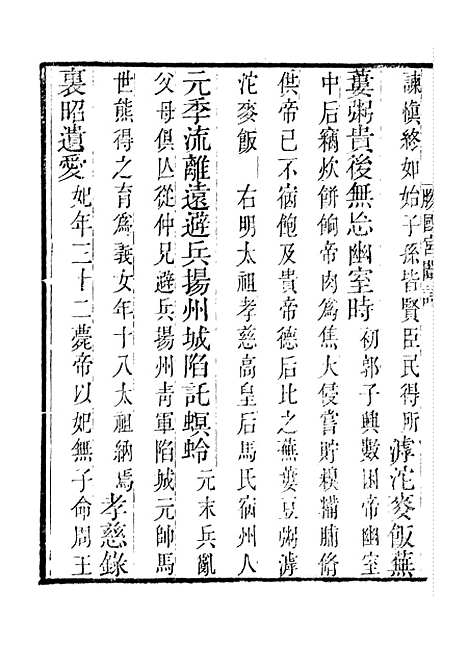 諫愼終如始子孫皆賢臣民得所滹沱麥飯蕪
蔞粥貴後無忘幽室時初郭子興數困帝幽室
中后竊炊餅餉帝肉爲焦大侵嘗貯糗糒脯脩
供帝己不宿飽及貴帝德后比之蕪蔞豆粥滹
沱麥飯 右明太祖孝慈高皇后馬氏宿州人
元季流離遠避兵揚州城陷託螟蛉元末兵亂
父母俱亾從仲兄避兵揚州靑軍陷城元帥馬
世熊得之育爲義女年十八太祖納焉孝慈錄
裏昭遺愛妃年三十二薨帝以妃無子命周王